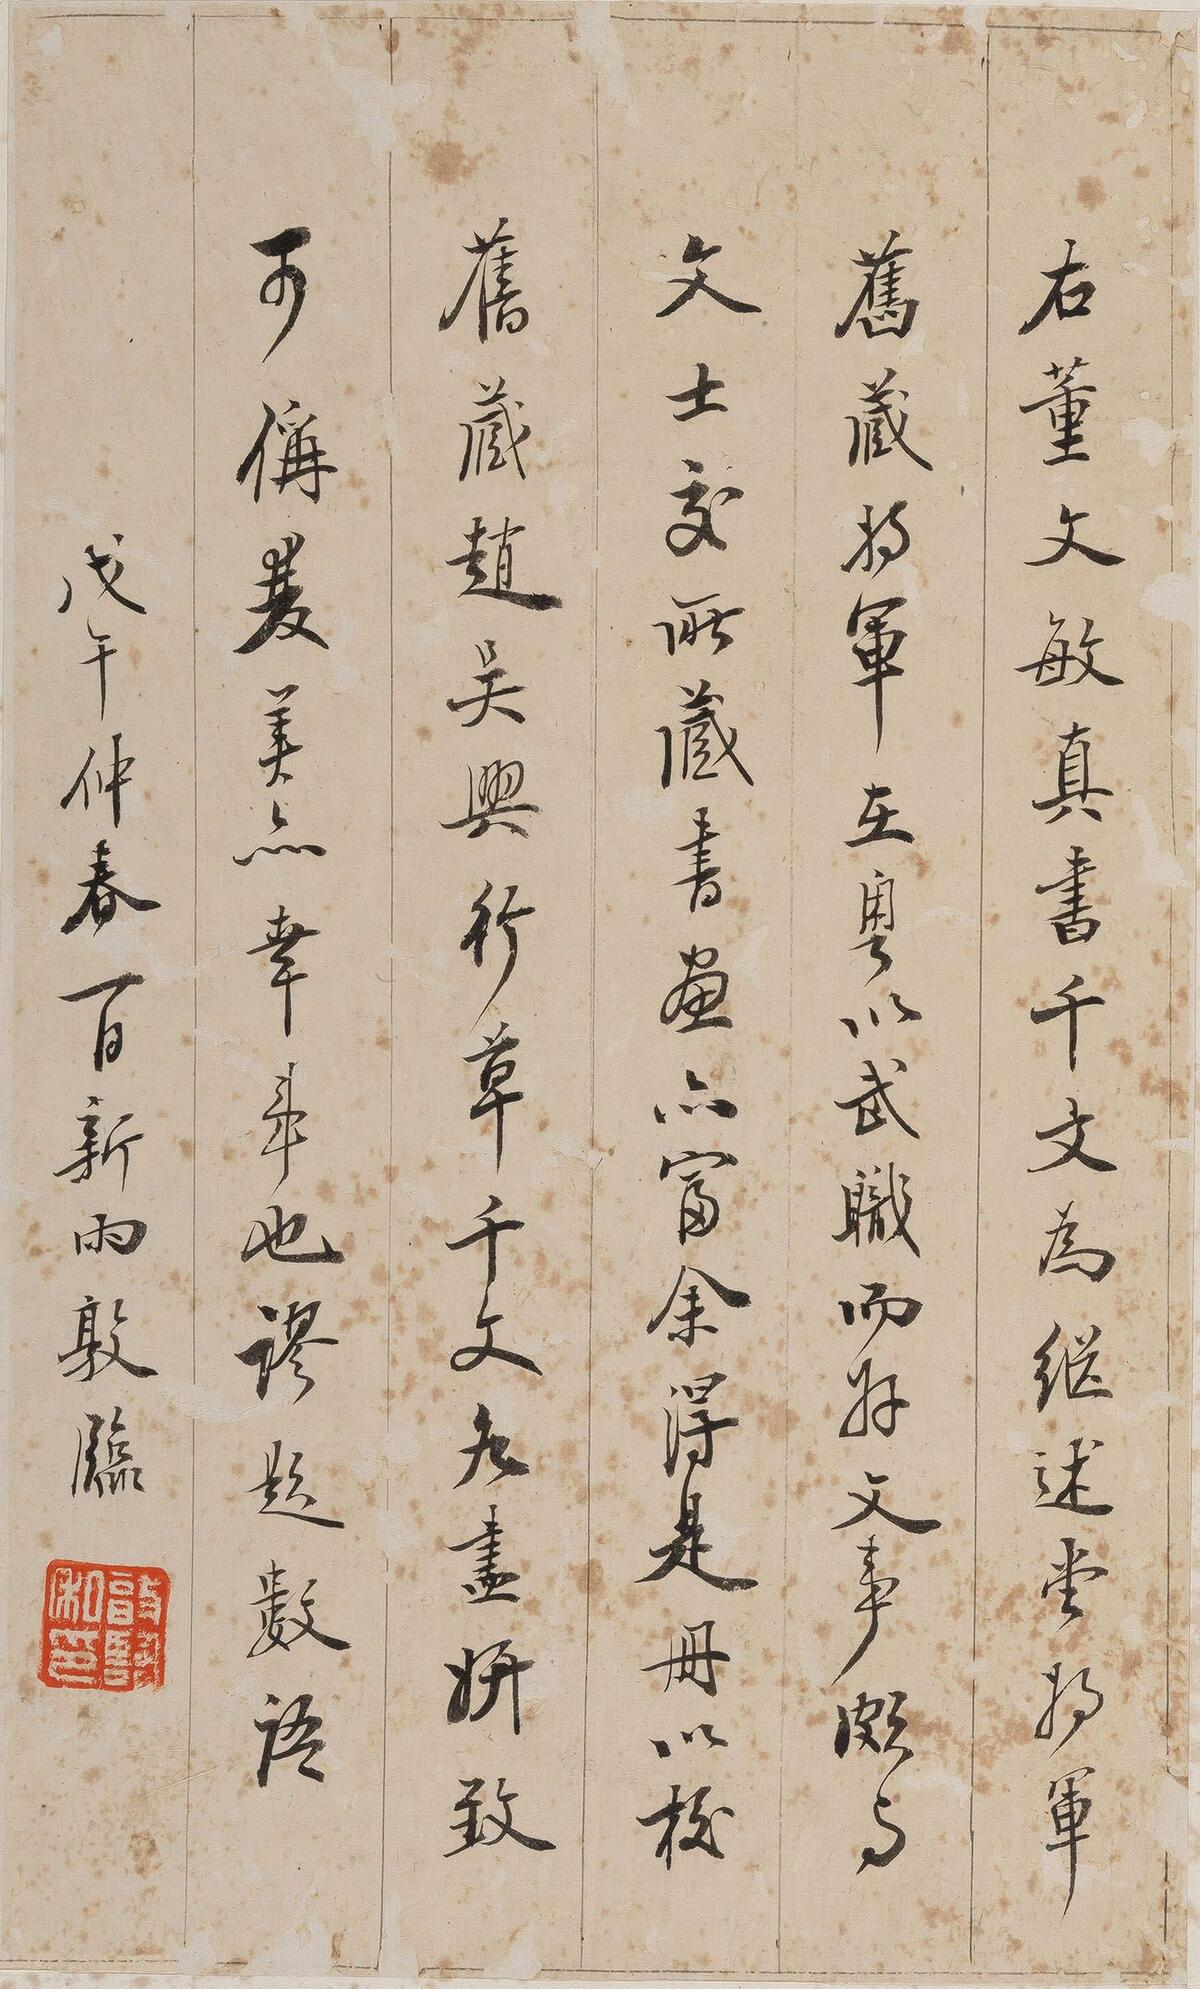 右董文敏真書千文為繼述堂將軍
舊藏將軍在粵以武職而好文事頗與
文士交所藏書畫亦富余得是冊以校
舊藏趙吳興行草千文各盡妍致
可稱雙美亦幸事也謬題數語
戊午仲春一日新雨敦臨